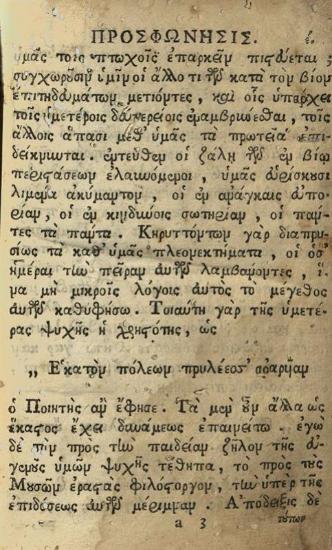 ΠΡΟΣΦΩΝΗΣΙΣ. έ.
ὑμᾶς τοῖς πτωχοῖς ἐπαρκεῖν
συγχωρῦσιν ὑμῖν οἱ ἄλλο τι τῶν κατὰ τὸν βίον
ἐπιτηδευμάτων μετιόντες, καὶ οἷς ὑπάρχει
τοῖς ὑμετέροις τοῖς
ἄλλοις ἅπασι μεθ' ὑμᾶς τὰ πρωτεῖα ἐπι-
δείκνυνται. ἐντεῦθεν οἱ ζάλῃ τῶν ἐν βίῳ
περιστάσεων ἐλαυνόμενοι, ὑμᾶς εὑρίσκουσι
λιμένα ἀκύμαντον, οἱ ἐν ἀνάγκαις
οἱ ἐν κινδύνοις σωτηρίαν, οἱ πάν-
τες τὰ πάντα. Κηρυττόντων γὰρ διαπρυ-
σίως τὰ καθ' ὑμᾶς πλεονεκτήματα, οἱ ὁσ-
ημέραι τὴν πεῖραν αὐτῶν λαμβάνοντες, ἵ-
να μὴ μικροῖς λόγοις αὐτὸς τὸ μέγεθος
αὐτῶν καθυφήσω. Τοιαύτη γὰρ τῆς ὑμετέ-
ρας ψυχῆς ἡ χρηστότης, ὡς
„ Ἑκατὸν πόλεων
ὁ Ποιητὴς ἂν ἔφησε. Τὰ μὲν οὖν ἄλλα ὡς
ἕκαστος ἔχει δυνάμεως ἐπαινείτω. ἐγὼ
δὲ τὴν πρὸς τὴν παιδείαν ζῆλον τῆς εὐ-
γενοῦς ὑμῶν ψυχῆς τέθηπα, τὸ πρὸς τὰς
Μουσῶν ἐραστὰς φιλόστοργον, τὴν ὑπὲρ τῆς
ἐπιδόσεως αὐτῶν μέριμναν. Ἀπόδειξις δὲ
a 3 τούτων